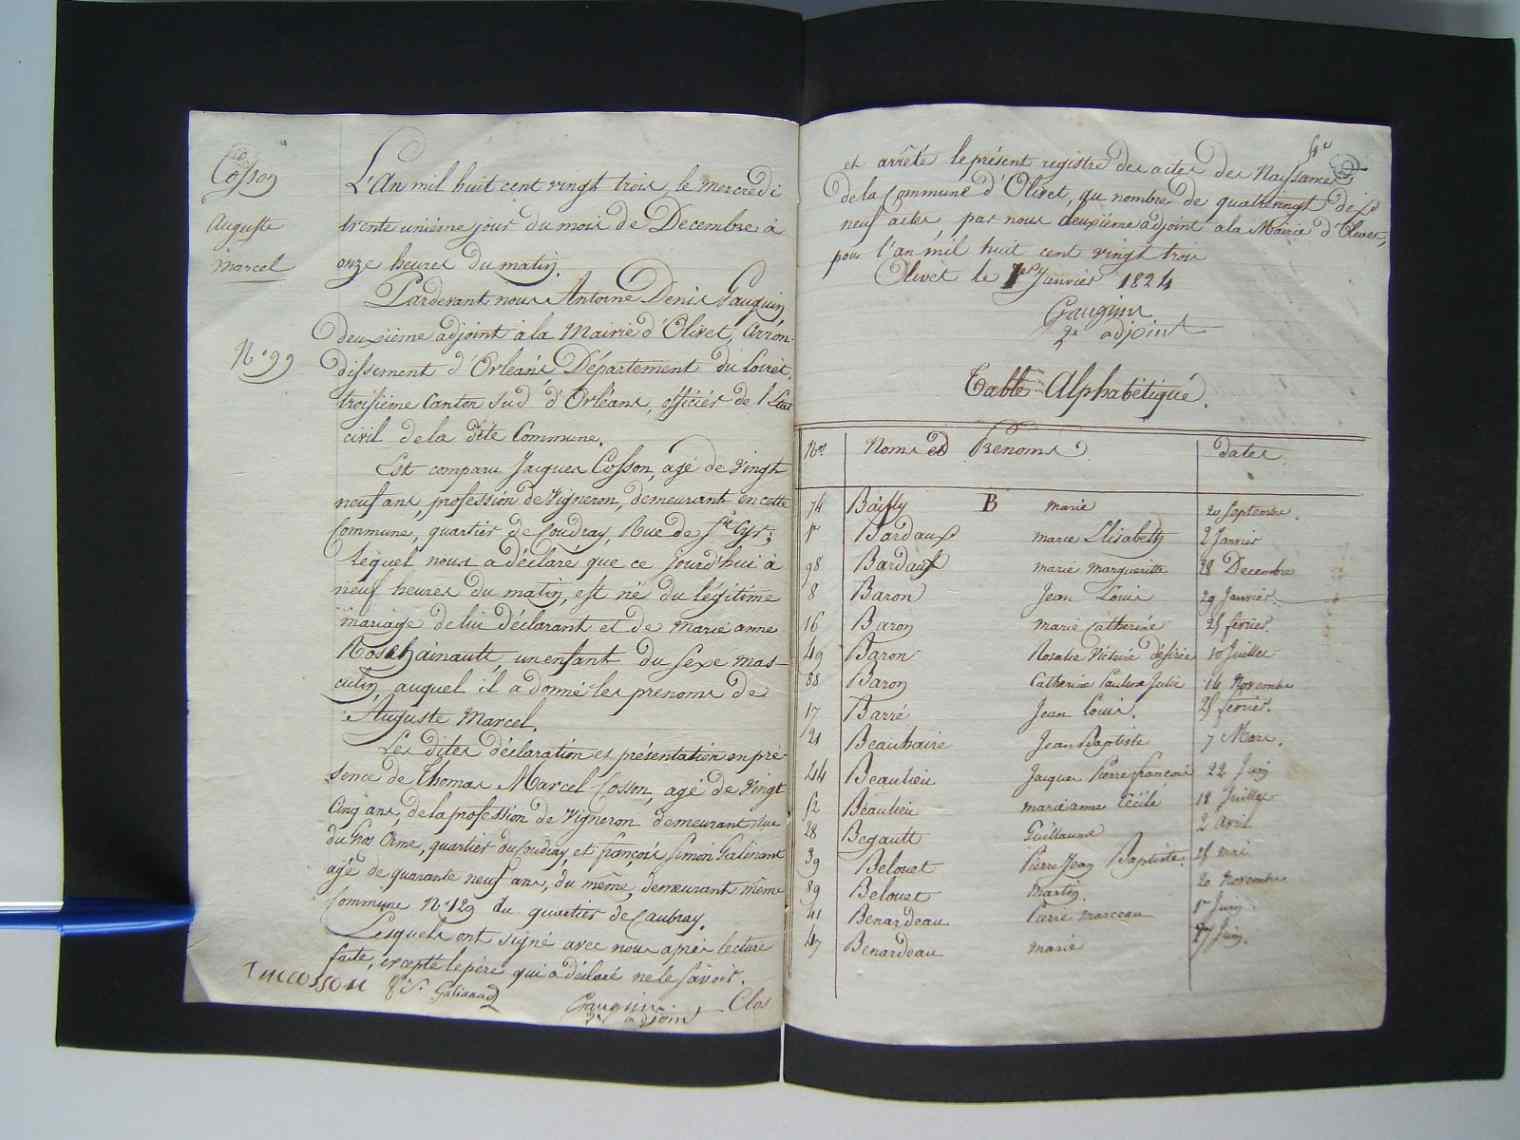 Cosson
Auguste
Marcel
N.° 99
L'An mil huit cent vingt trois le mercredi
trente unième jour du mois de Decembre à
onze heures du matin.
Pardevant nous Antoine Denis Gauguin,
deuxième adjoint à la Mairie d'Olivet, Arron-
dissement d'Orléans, Département du Loiret,
troisième Canton Sud d'Orléans, officier de l'Etat
civil de la dite Commune.
Est comparu Jacques Cosson, agé de vingt
neuf ans, profession de Vigneron, demeurant en cette
Commune, quartier de Coudray, Rue de St Cyr;
Lequel nous a déclaré que ce jourd'hui à
neuf heures du matin, est né du légitime
mariage de lui déclarant et de Marie anne
Rose hainault, un enfant du Sexe mas-
culin, auquel il a donné les prenoms de
Auguste Marcel.
Les dites déclaration et présentation en pré-
sence de Thomas Marcel Cosson, agé de vingt
Cinq ans, de la profession de Vigneron demeurant Rue
du Gros Orme, quartier du Coudray, et françois Simon Galinand
agé de quarante neuf ans, du même, demeurant même
Commune N.° 129 du quartier de Caubray.
Lesquels ont signé avec nous après lecture
faite, excepté le père qui a déclaré ne le savoir.
TMCOSSON f.s. Galinand
Gauguin
2e adjoint
Clos
et arrêté le présent registre des actes des Naissances
de la Commune d'Olivet, au nombre de quatrevingt dix
neuf actes, par nous deuxième adjoint à la Mairie d'Olivet,
pour l'an mil huit cent vingt trois
Olivet le 1er Janvier 1824
Gauguin
2e adjoint
Table Alphabétique.
Nos Noms et Prénoms dates
B
74 Bailly marie 20 Septembre.
1r Bardaux marie Elisabeth 2 Janvier
98 Bardaux marie marguerite 28 Decembre
8 Baron Jean Louis 29 Janvier
16 Baron marie catherine 25 février.
49 Baron Rosalie Victoire désirée 10 Juillet
88 Baron Catherine Pauline Julie 14 Novembre
17 Barré Jean Louis. 25 février.
21 Beauhaire Jean Baptiste 7 Mars.
44 Beaulieu Jacques Pierre françois 22 Juin
52 Beaulieu marie anne Cécile 18 Juillet
28 Begault Guillaume 2 avril
39 Belouet Pierre Jean Baptiste. 25 mai
89 Belouet Martin. 20 Novembre
41 Benardeau Pierre marceau 1r Juin
47 Benardeau marie 27 Juin.